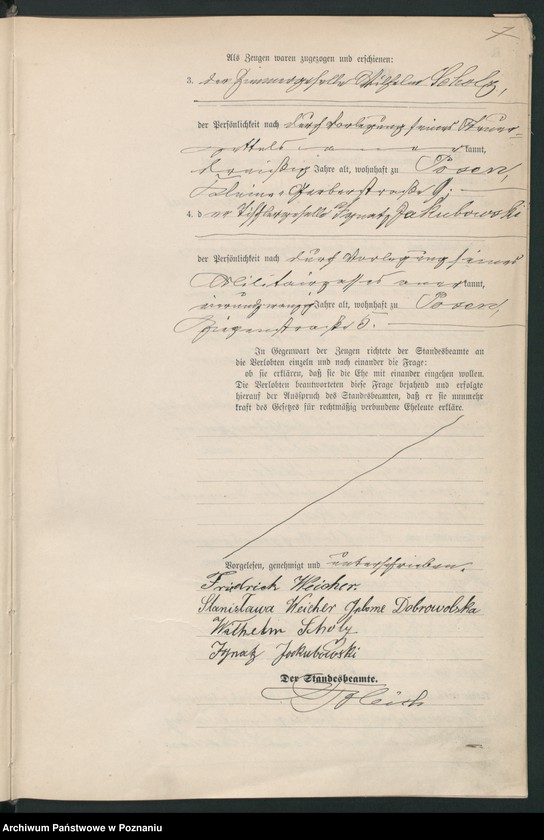 7
Als Zeugen waren zugezogen und erschienen:
3. der Zimmergeselle Wilhelm Scholz,
der Persönlichkeit nach durch Vorlegung seines Steuer-
zettels anerkannt,
dreißig Jahre alt, wohnhaft zu Posen,
Kleine Gerberstraße 9;
4. der Tischlergeselle Ignatz Jakubowski
der Persönlichkeit nach durch Vorlegung seines
Militairpasses anerkannt,
vierundzwanzig Jahre alt, wohnhaft zu Posen,
Ziegenstraße 5.
In Gegenwart der Zeugen richtete der Standesbeamte an
die Verlobten einzeln und nach einander die Frage:
ob sie erklären, daß sie die Ehe mit einander eingehen wollen.
Die Verlobten beantworteten diese Frage bejahend und erfolgte
hierauf der Ausspruch des Standesbeamten, daß er sie nunmehr
kraft des Gesetzes für rechtmäßig verbundene Eheleute erkläre.
Vorgelesen, genehmigt und unterschrieben.
Friedrich Weicher.
Stanisława Weicher Dobrowolska
Wilhelm Scholz
Ignatz Jakubowski
Der Standesbeamte.
Archiwum Państwowe w Poznaniu